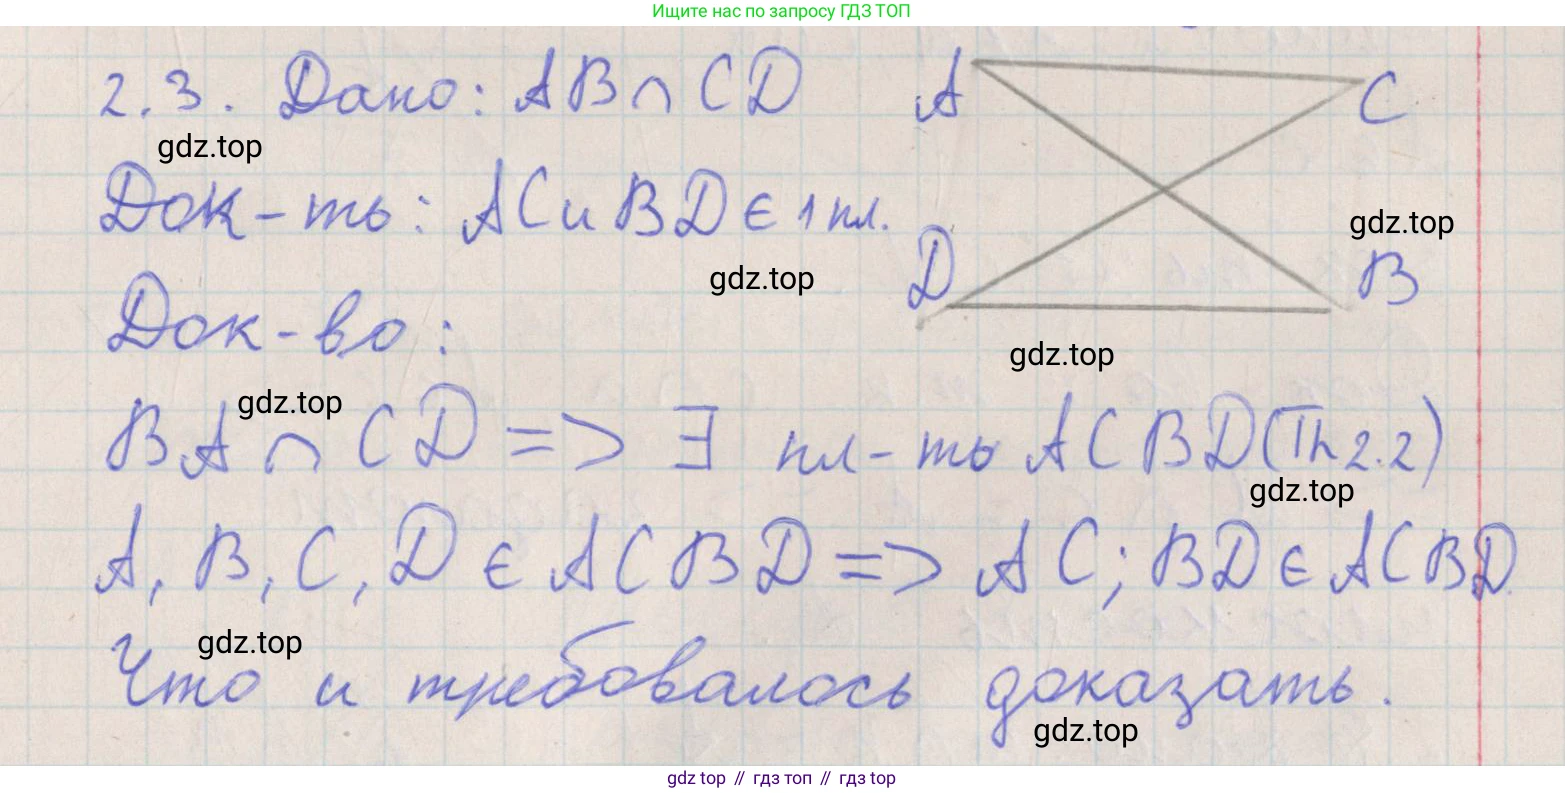 Ищите нас по запросу ГДЗ ТОП
2.3. Дано: AB ∩ CD
A
C
gdz.top
Док-ть: AC и BD ∈ 1 пл.
gdz.top
gdz.top
D
B
Док-во:
gdz.top
gdz.top
BA ∩ CD => ∃ пл-ть ACBD (Th 2.2)
gdz.top
A, B, C, D ∈ ACBD => AC; BD ∈ ACBD
gdz.top
Что и требовалось доказать.
gdz.top
gdz top // гдз топ // гдз top